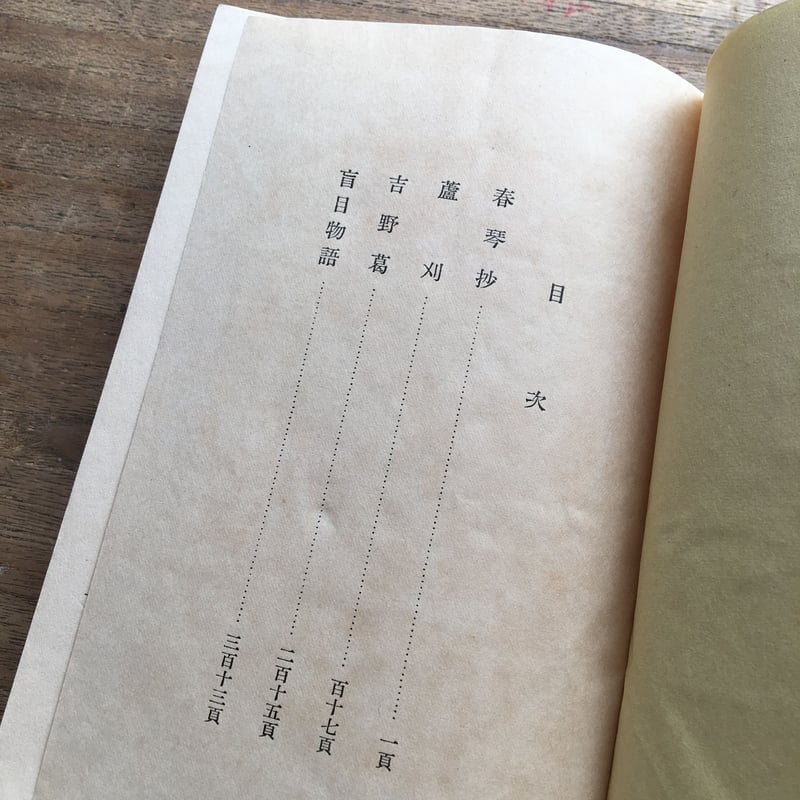 目次
春琴抄……一頁
蘆刈……百十七頁
吉野葛……二百十五頁
盲目物語……三百十三頁